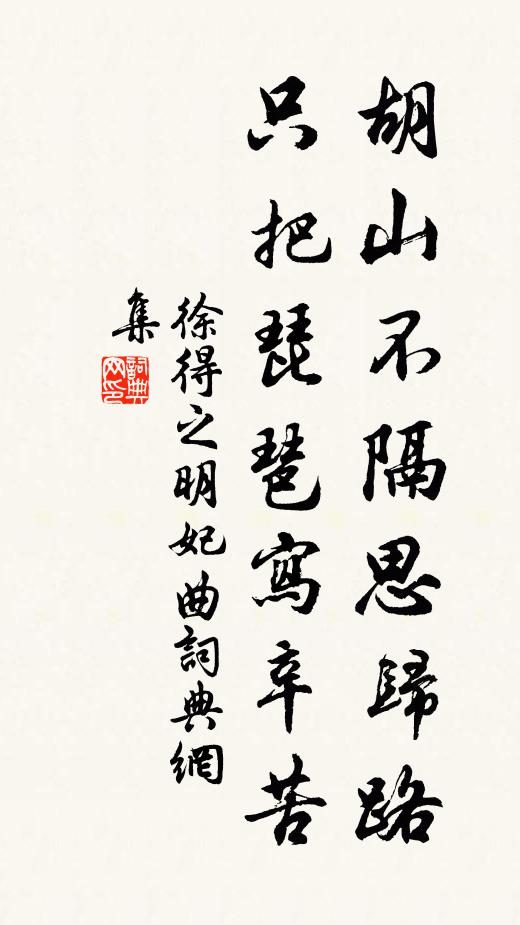 胡山不隔思歸路
只把琵琶寫辛苦
徐得之明妃曲詞典網
集
詞典网印